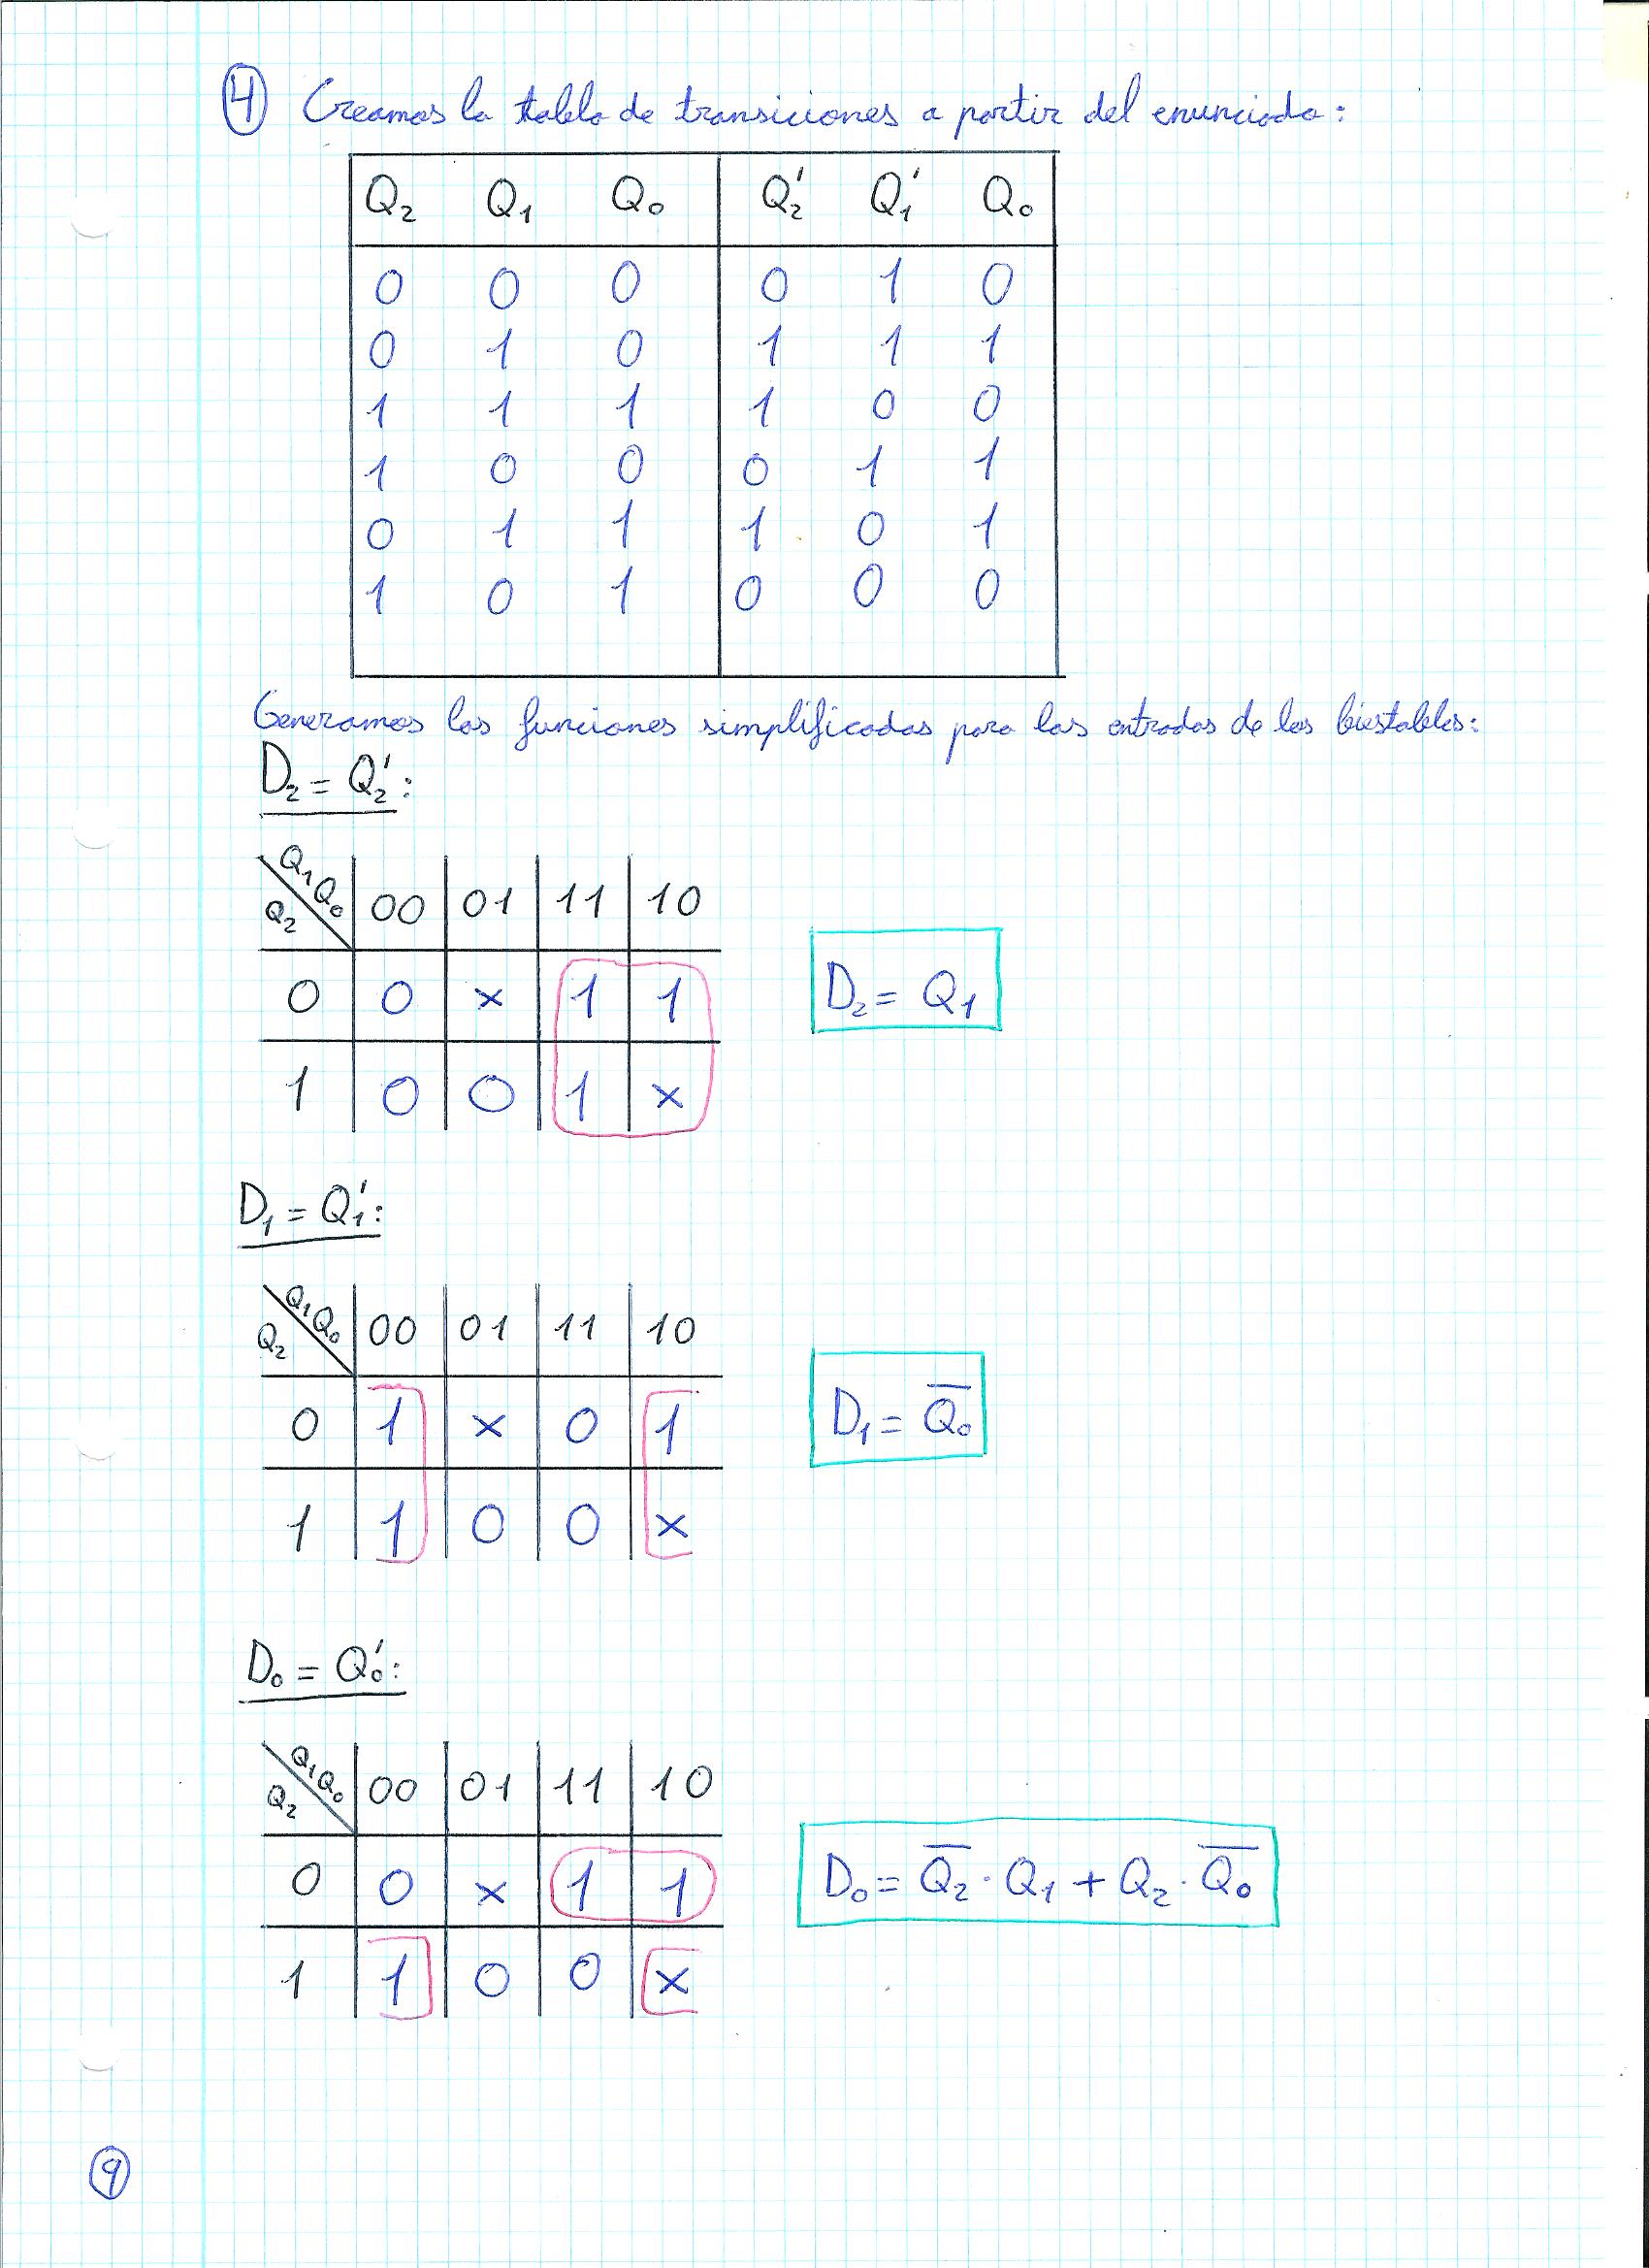 4 Creamos la tabla de transiciones a partir del enunciado:
Q₂ Q₁ Q₀ Q₂' Q₁' Q₀
0 0 0 0 1 0
0 1 0 1 1 1
1 1 1 1 0 0
1 0 0 0 1 1
0 1 1 1 0 1
1 0 1 0 0 0
Generamos las funciones simplificadas para las entradas de los biestables:
D₂ = Q₂':
Q₁Q₀
Q₂ 00 01 11 10
0 0 x 1 1
1 0 0 1 x
D₂ = Q₁
D₁ = Q₁':
Q₁Q₀
Q₂ 00 01 11 10
0 1 x 0 1
1 1 0 0 x
D₁ = Q̅₀
D₀ = Q₀':
Q₁Q₀
Q₂ 00 01 11 10
0 0 x 1 1
1 1 0 0 x
D₀ = Q̅₂ · Q₁ + Q₂ · Q̅₀
9